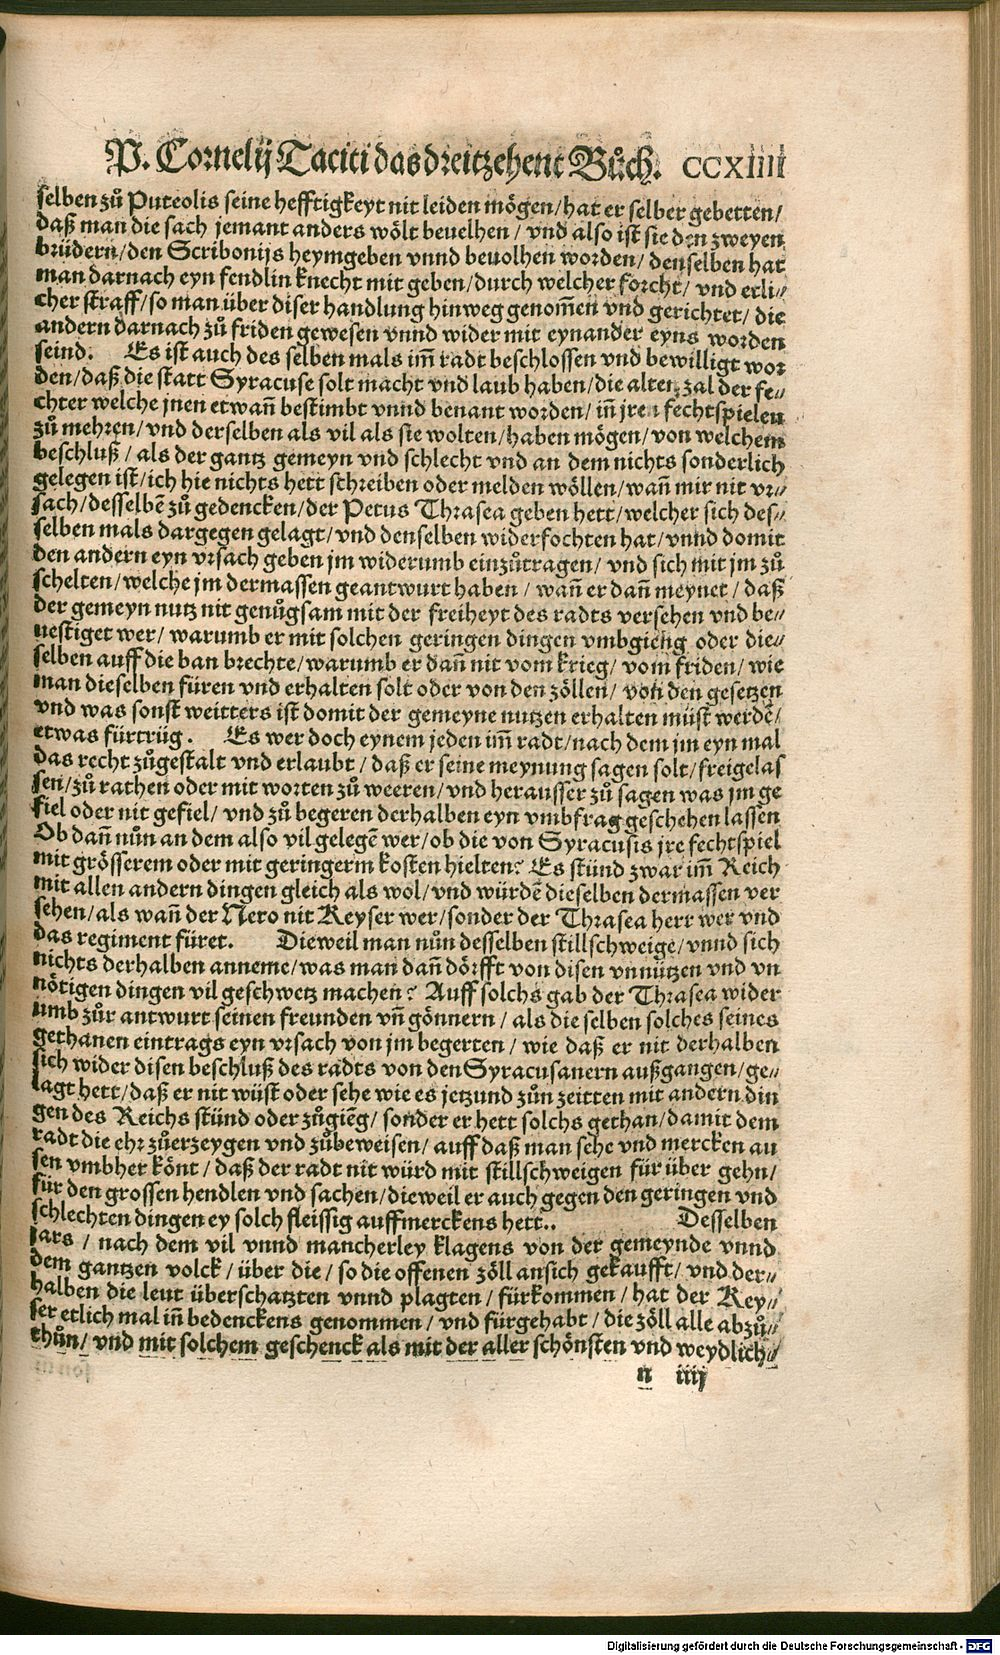 P. Cornelij Taciti das dreitzehent Bůch. CCXIIII
selben zů Puteolis seine hefftigkeyt nit leiden mögen/ hat er selber gebetten/
daß man die sach jemant anders wölt beuelhen/ vnd also ist sie den zweyen
brüdern/ den Scribonijs heymgeben vnnd beuolhen worden/ denselben hat
man darnach eyn fendlin knecht mit geben/ durch welcher forcht/ vnd erli⸗
cher straff/ so man über diser handlung hinweg genom̃en vnd gerichtet/ die
andern darnach zů friden gewesen vnnd wider mit eynander eyns worden
seind. Es ist auch des selben mals im̃ radt beschlossen vnd bewilligt wor
den/ daß die statt Syracuse solt macht vnd laub haben/ die alten zal der fe⸗
chter welche jnen etwañ bestimbt vnnd benant worden/ iñ jren fechtspielen
zů mehren/ vnd derselben als vil als sie wolten/ haben mögen/ von welchem
beschluß/ als der gantz gemeyn vnd schlecht vnd an dem nichts sonderlich
gelegen ist/ ich hie nichts hett schreiben oder melden wöllen/ wañ mir nit vr⸗
sach/ desselbẽ zů gedencken/ der Petus Thrasea geben hett/ welcher sich des⸗
selben mals dargegen gelagt/ vnd denselben widerfochten hat/ vnnd domit
den andern eyn vrsach geben jm widerumb einzůtragen/ vnd sich mit jm zů
schelten/ welche jm dermassen geantwurt haben/ wañ er dañ meynet/ daß
der gemeyn nutz nit genůgsam mit der freiheyt des radts versehen vnd be⸗
uestiget wer/ warumb er mit solchen geringen dingen vmbgieng oder die⸗
selben auff die ban brechte/ warumb er dañ nit vom krieg/ vom friden/ wie
man dieselben füren vnd erhalten solt oder von den zöllen/ von den gesetzen
vnd was sonst weitters ist domit der gemeyne nutzen erhalten müst werdẽ/
etwas fürtrüg. Es wer doch eynem jeden im̃ radt/ nach dem jm eyn mal
das recht zůgestalt vnd erlaubt/ daß er seine meynung sagen solt/ freigelas
sen/ zů rathen oder mit worten zů weeren/ vnd herausser zů sagen was jm ge
fiel oder nit gefiel/ vnd zů begeren derhalben eyn vmbfrag geschehen lassen
Ob dañ nůn an dem also vil gelegẽ wer/ ob die von Syracusis jre fechtspiel
mit grösserem oder mit geringerm kosten hielten? Es stünd zwar im̃ Reich
mit allen andern dingen gleich als wol/ vnd würdẽ dieselben dermassen ver
sehen/ als wañ der Nero nit Keyser wer/ sonder der Thrasea herr wer vnd
das regiment füret. Dieweil man nůn desselben stillschweige/ vnnd sich
nichts derhalben anneme/ was man dañ dörfft von disen vnnützen vnd vn
nötigen dingen vil geschwetz machen? Auff solchs gab der Thrasea wider
umb zůr antwurt seinen freunden vñ gönnern/ als die selben solches seines
gethanen eintrags eyn vrsach von jm begerten/ wie daß er nit derhalben
sich wider disen beschluß des radts von den Syracusanern außgangen/ ge⸗
lagt hett/ daß er nit wüst oder sehe wie es jetzund zůn zeitten mit andern din
gen des Reichs stünd oder zůgiẽg/ sonder er hett solchs gethan/ damit dem
radt die ehr zůerzeygen vnd zůbeweisen/ auff daß man sehe vnd mercken au
sen vmbher könt/ daß der radt nit würd mit stillschweigen für über gehn/
für den grossen hendlen vnd sachen/ dieweil er auch gegen den geringen vnd
schlechten dingen ey solch fleissig auffmerckens hett.. Desselben
jars/ nach dem vil vnnd mancherley klagens von der gemeynde vnnd
dem gantzen volck/ über die/ so die offenen zöll an sich gekaufft/ vnd der⸗
halben die leut überschatzten vnnd plagten/ fürkommen/ hat der Key⸗
ser etlich mal iñ bedenckens genommen/ vnd fürgehabt/ die zöll alle abzů⸗
thůn/ vnd mit solchem geschenck als mit der aller schönsten vnd weydlich⸗
n iiij
Digitalisierung gefördert durch die Deutsche Forschungsgemeinschaft - DFG